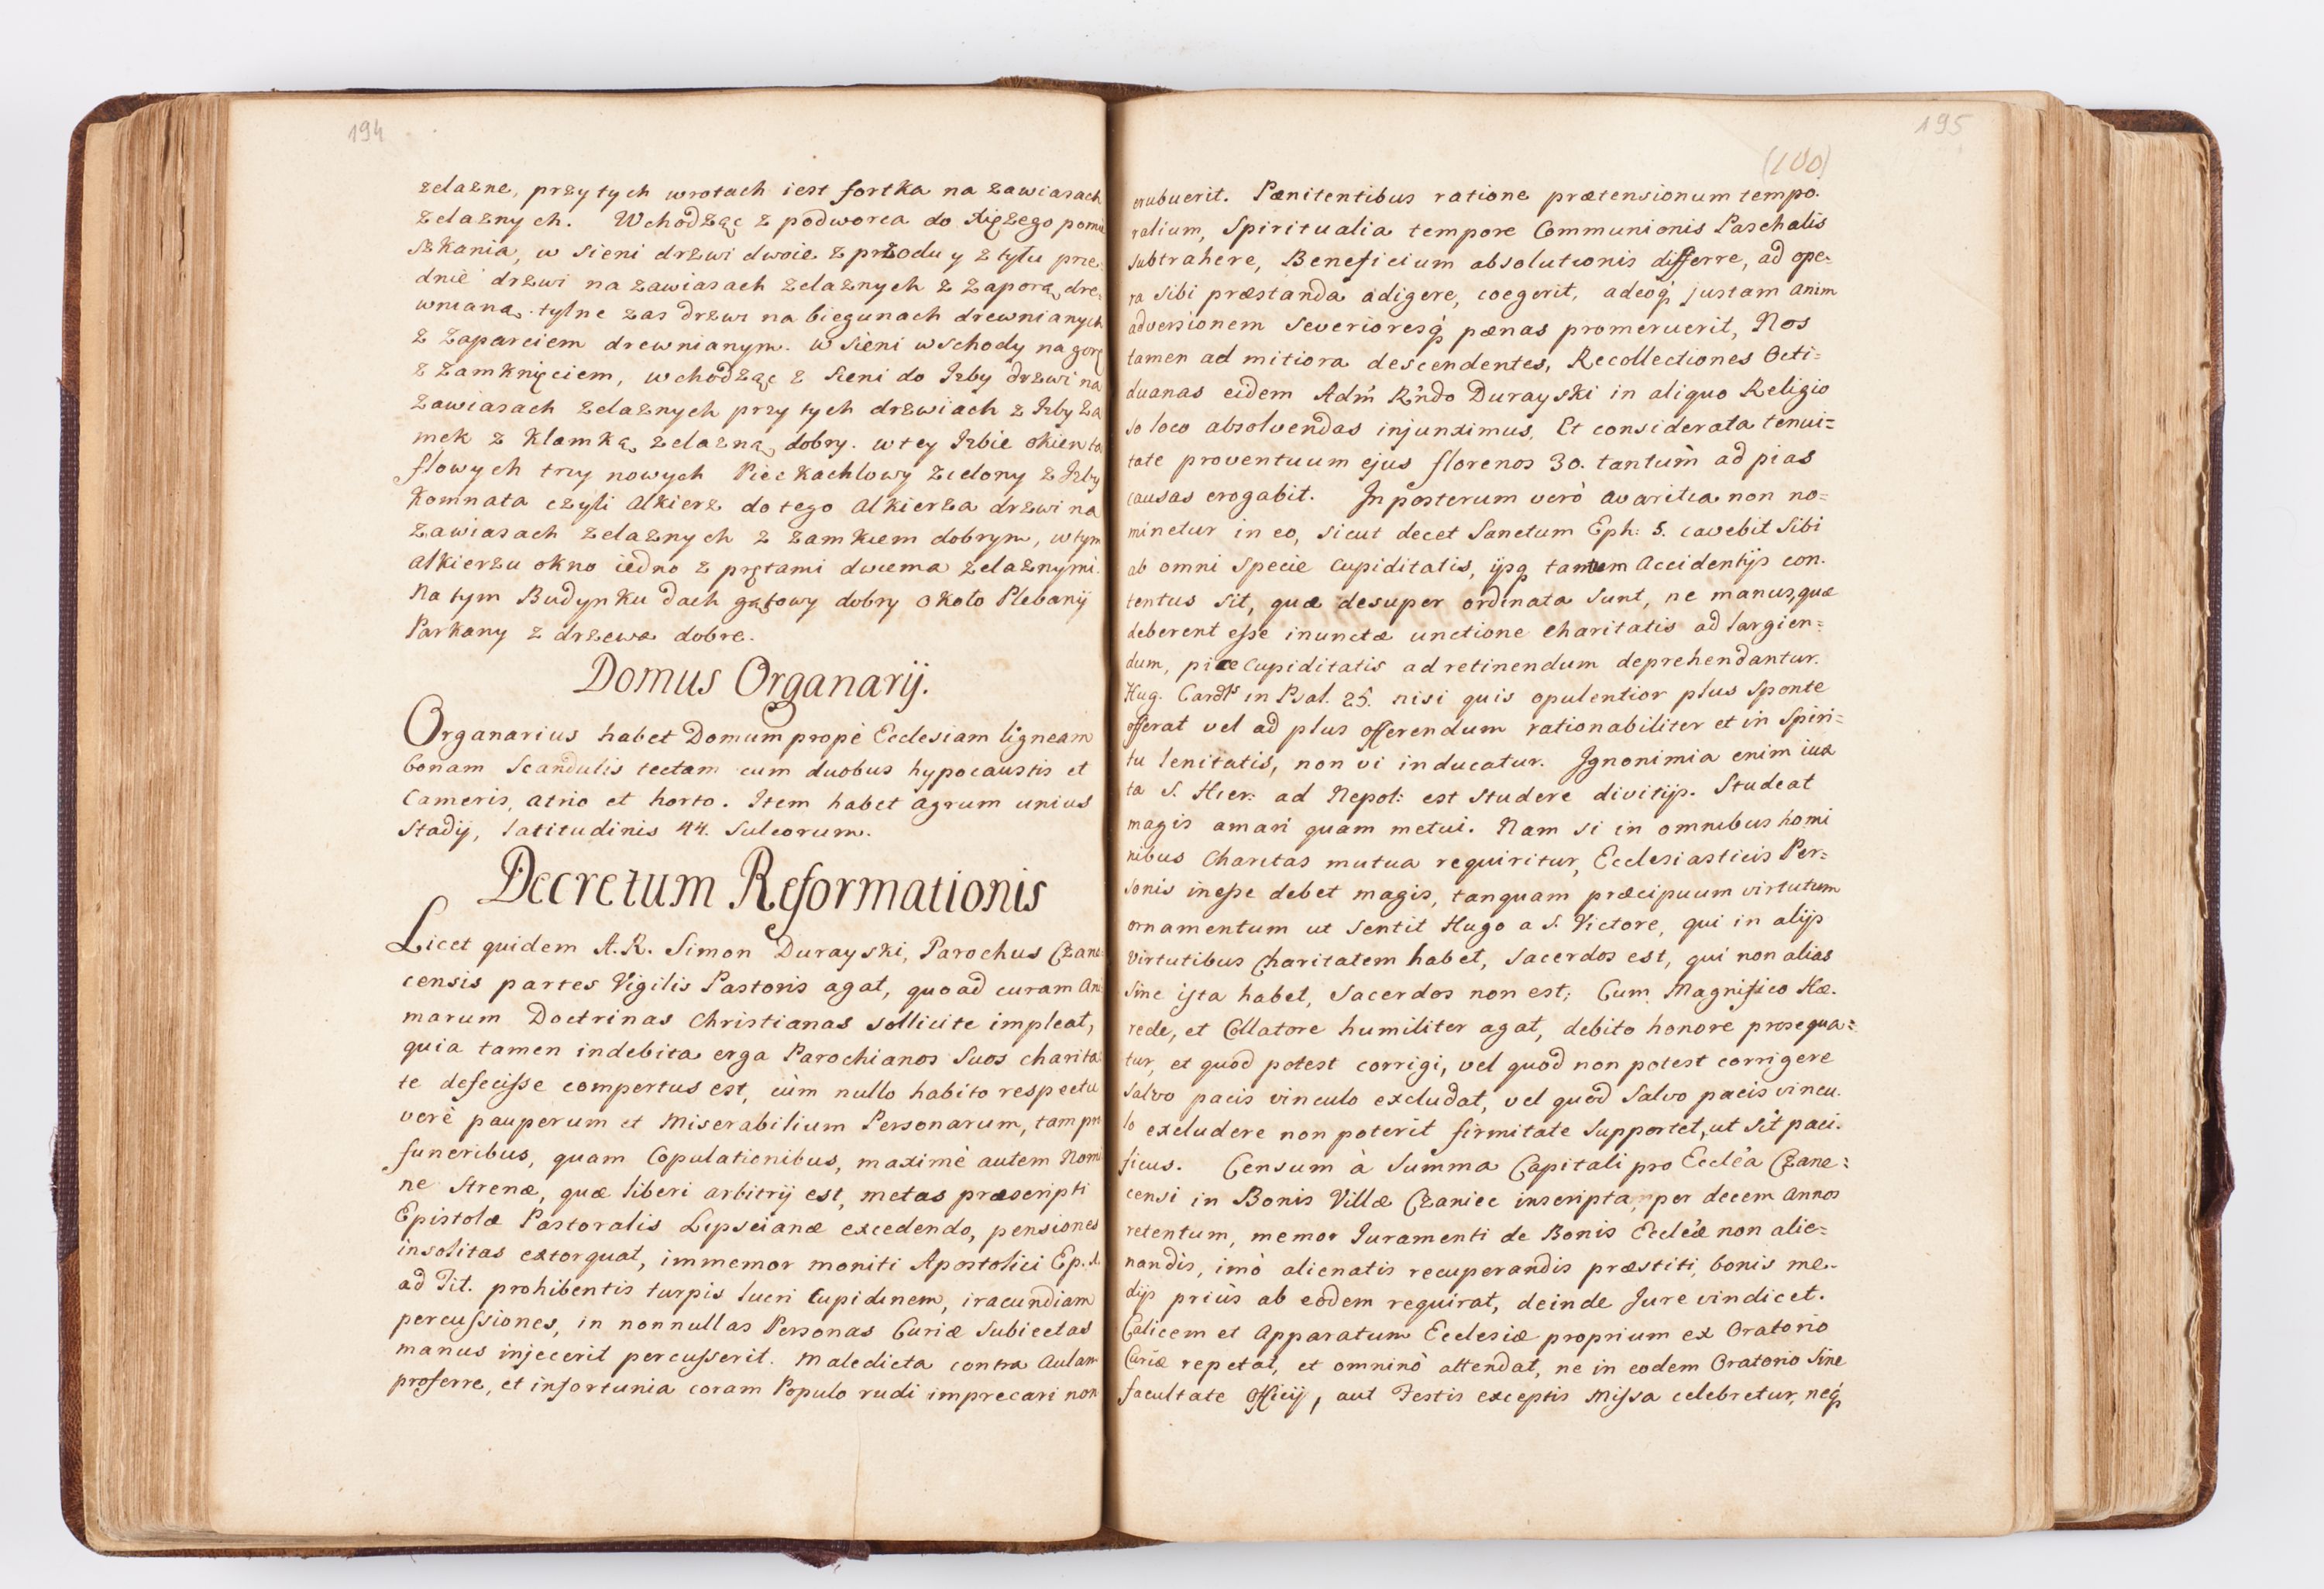 194
zelazne, przy tych wrotach iest fortka na zawiasach
zelaznych. Wchodząc z podworca do xięzego pomie
szkania, w sieni drzwi dwoie z przodu y z tyłu prze:
dnie drzwi na zawiasach zelaznych z zaporą dre:
wnianą. tylne zas drzwi na biegunach drewnianych
z zaparciem drewnianym. w sieni wschody na gorę
z zamknięciem, wchodząc z sieni do Izby drzwi na
zawiasach zelaznych przy tych drzwiach z Izby za
mek z klamką zelazną dobry. w tey Izbie okien ta
flowych trzy nowych Piec kachlowy zielony z Izby
Komnata czyli Alkierz do tego Alkierza drzwi na
zawiasach zelaznych z zamkiem dobrym, w tym
alkierzu okno iedno z prętami dwiema zelaznymi.
Na tym Budynku dach gątowy dobry około Plebanij
Parkany z drzewa dobre.
Domus Organarij.
Organarius habet Domum propè Ecclesiam ligneam
bonam Scandulis tectam cum duobus hypocaustis et
Cameris, atrio et horto. Item habet agrum unius
Stadij, latitudinis 44. Sulcorum.
Decretum Reformationis
Licet quidem A.R. Simon Durayski, Parochus Czane
censis partes Vigilis Pastoris agat, quo ad curam Ani
marum Doctrinas Christianas sollicite impleat,
quia tamen indebita erga Parochianos Suos charita
te defecisse compertus est, cùm nullo habito respectu
verè pauperum et Miserabilium Personarum, tam pro
funeribus, quam Copulationibus, maximè autem Nomi
ne Strenæ, quæ liberi arbitrij est, metas præscripti
Epistolæ Pastoralis Lipscianæ excedendo, pensiones
insolitas extorquat, immemor moniti Apostolici Ep.
ad Tit. prohibentis turpis lucri Cupidinem, iracundiam
percussiones, in nonnullas Personas Curiæ Subiectas
manus injecerit percusserit. Maledicta contra Aulam
proferre, et infortunia coram Populo rudi imprecari non
195
(100)
erubuerit. Pænitentibus ratione prætensionum tempo.
ralium, Spiritualia tempore Communionis Paschalis
subtrahere, Beneficium absolutionis differre, ad ope-
ra sibi præstanda adigere, coegerit, adeoq́ justam anim
adversionem severioresq́ pænas promeruerit, Nos
tamen ad mitiora descendentes, Recollectiones Octi=
duanas eidem Adm̃ R̃ndo Durayski in aliquo Religio
so loco absolvendas injunximus. Et considerata tenui=
tate proventuum ejus florenos 30. tantùm ad pias
causas erogabit. In posterum verò avaritia non no=
minetur in eo, sicut decet Sanctum Eph: 5. cavebit sibi
ab omni specie cupiditatis, ijsq́ tantum Accidentijs con.
tentus sit, quæ desuper ordinata sunt, ne manus, quæ
deberent esse inunctæ unctione Charitatis ad largien=
dum, pice Cupiditatis ad retinendum deprehendantur.
Hug. Cardls in Psal. 25. nisi quis opulentior plus sponte
offerat vel ad plus offerendum rationabiliter et in spiri=
tu lenitatis, non vi inducatur. Ignonimia enim iux
ta S. Hier: ad Nepot: est studere divitijs. Studeat
magis amari quam metui. Nam si in omnibus homi
nibus Charitas mutua requiritur, Ecclesiasticis Per=
sonis inesse debet magis, tanquam præcipuum virtutum
ornamentum ut sentit Hugo a S. Victore, qui in alijs
virtutibus Charitatem habet, Sacerdos est, qui non alias
sine ista habet, Sacerdos non est; Cum Magnifico Hæ.
rede, et Collatore humiliter agat, debito honore prosequa=
tur, et quod potest corrigi, vel quod non potest corrigere
salvo pacis vinculo excludat, vel quod Salvo pacis vincu.
lo excludere non poterit firmitate supportet, ut sit paci.
ficus. Censum à Summa Capitali pro Eccle'a Czane=
censi in Bonis Villæ Czaniec inscripta, per decem Annos
retentum, memor Iuramenti de Bonis Eccle'æ non alie=
nandis, imò alienatis recuperandis præstiti, bonis me-
dijs priùs ab eodem requirat, deinde Jure vindicet.
Calicem et Apparatum Ecclesiæ proprium ex Oratorio
Curiæ repetat, et omninò attendat, ne in eodem Oratorio sine
facultate Officij, aut Festis exceptis Missa celebretur, neq́